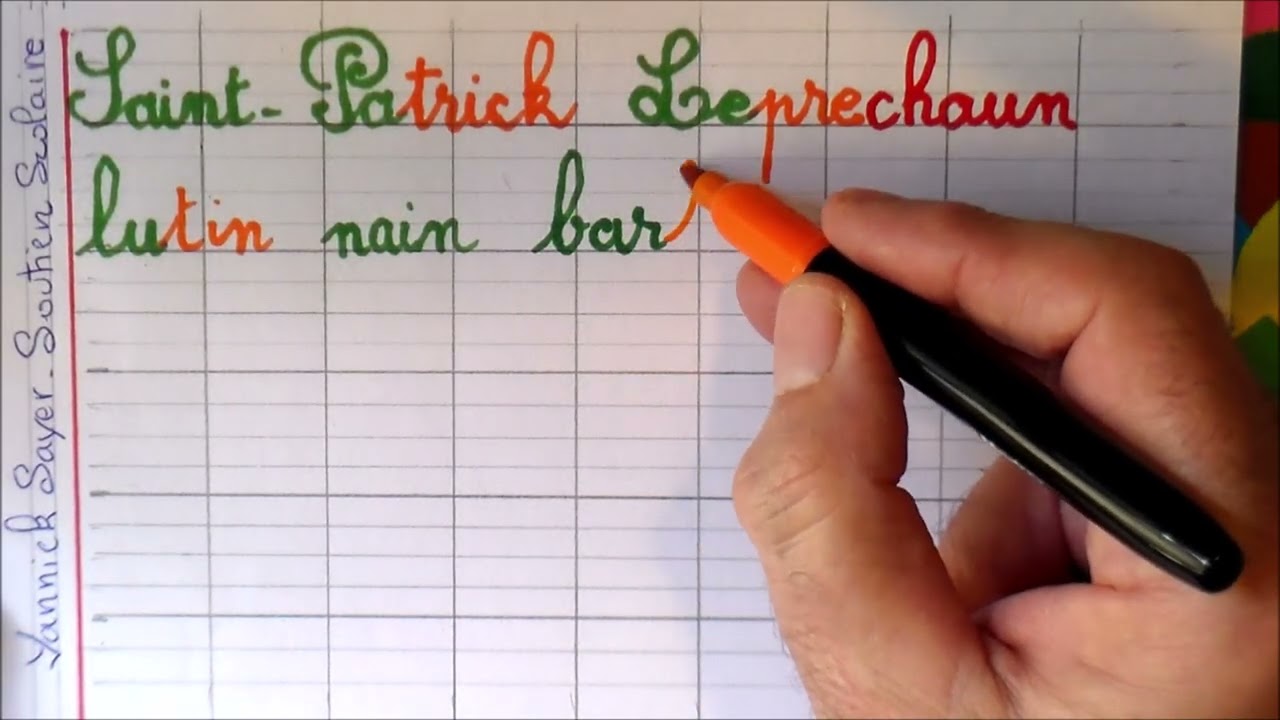 Saint-Patrick Leprechaun
lutin nain bar
Yannick Sayer - Soutien Scolaire